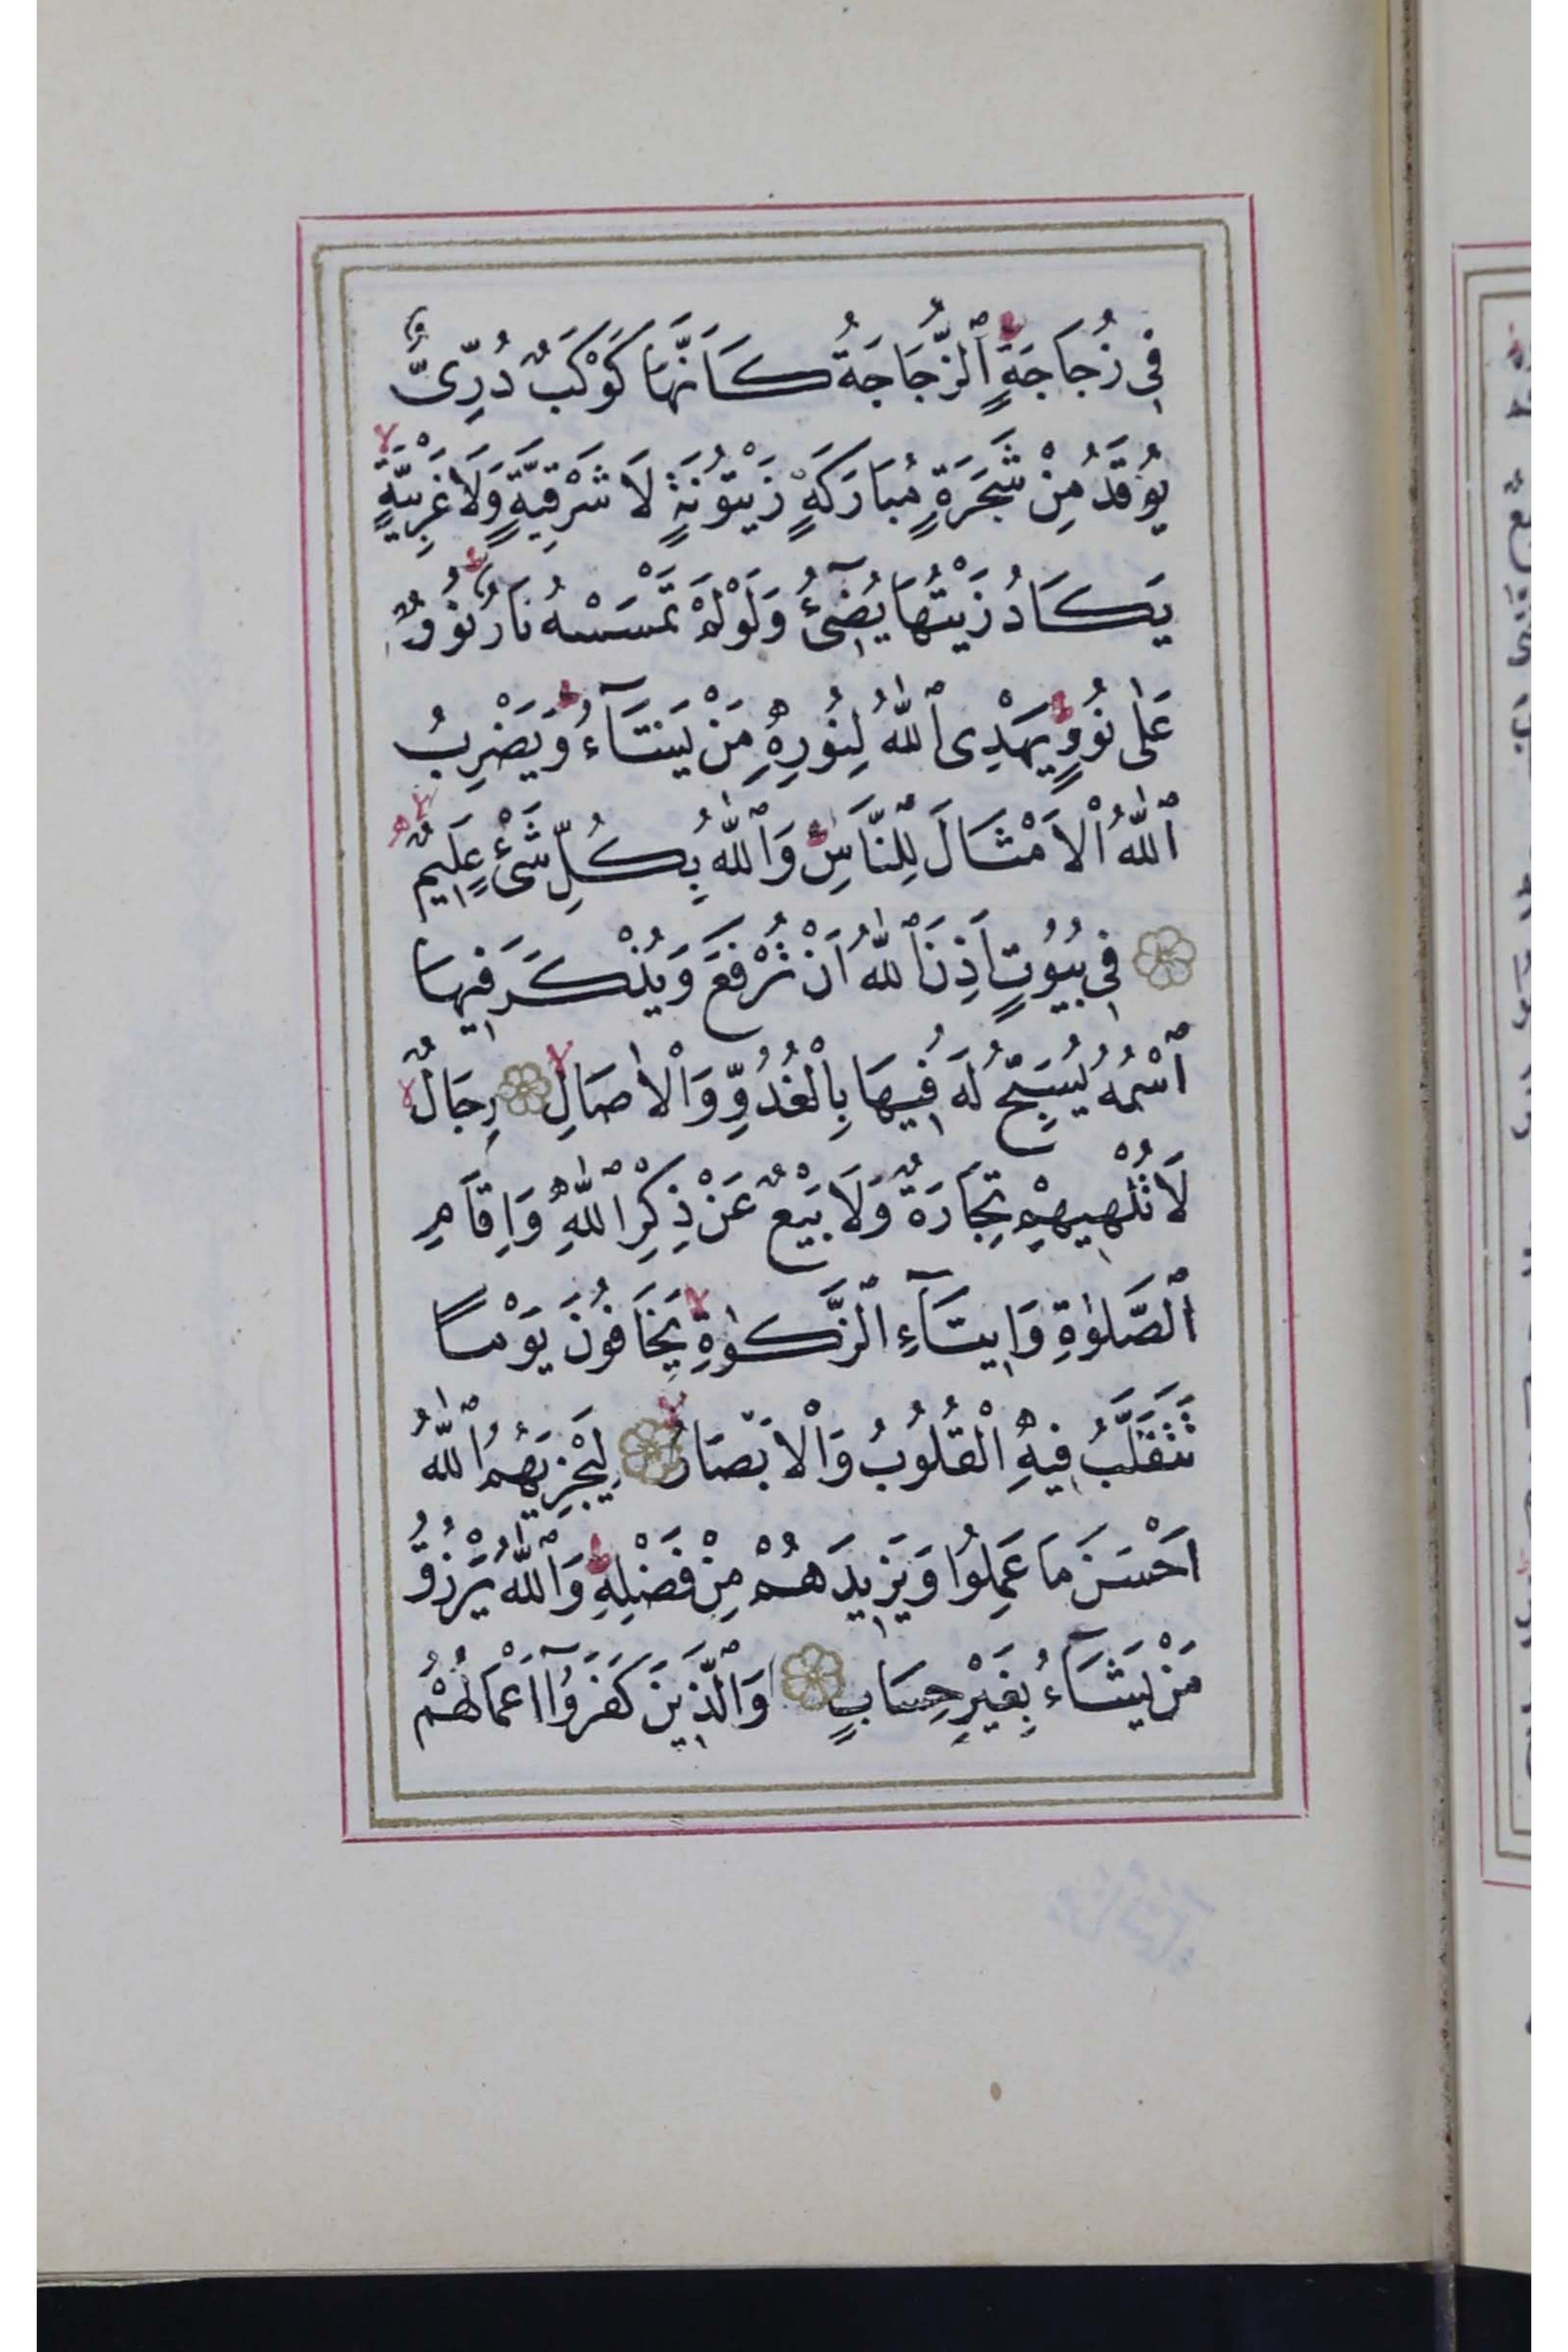 فِي زُجَاجَةٍ ٱلزُّجَاجَةُ كَاَنَّهَا كَوْكَبٌ دُرِّىٌّ
يُوقَدُ مِنْ شَجَرَةٍ مُبَارَكَةٍ زَيْتُونَةٍ لَا شَرْقِيَّةٍ وَلَا غَرْبِيَّةٍ
يَكَادُ زَيْتُهَا يُضِٓىءُ وَلَوْ لَمْ تَمْسَسْهُ نَارٌ نُورٌ
عَلٰى نُورٍ يَهْدِى ٱللّٰهُ لِنُورِهِ مَنْ يَشَٓاءُ وَيَضْرِبُ
ٱللّٰهُ الْاَمْثَالَ لِلنَّاسِ وَٱللّٰهُ بِكُلِّ شَىْءٍ عَلِيمٌ
فِي بُيُوتٍ اَذِنَ ٱللّٰهُ اَنْ تُرْفَعَ وَيُذْكَرَ فِيهَا
ٱسْمُهُ يُسَبِّحُ لَهُ فِيهَا بِالْغُدُوِّ وَالْاٰصَالِ رِجَالٌ
لَا تُلْهِيهِمْ تِجَارَةٌ وَلَا بَيْعٌ عَنْ ذِكْرِ ٱللّٰهِ وَاِقَامِ
ٱلصَّلٰوةِ وَاِيتَٓاءِ ٱلزَّكٰوةِ يَخَافُونَ يَوْمًا
تَتَقَلَّبُ فِيهِ الْقُلُوبُ وَالْاَبْصَارُ لِيَجْزِيَهُمُ ٱللّٰهُ
اَحْسَنَ مَا عَمِلُوا وَيَزِيدَهُمْ مِنْ فَضْلِهِ وَٱللّٰهُ يَرْزُقُ
مَنْ يَشَٓاءُ بِغَيْرِ حِسَابٍ وَٱلَّذِينَ كَفَرُٓوا اَعْمَالُهُمْ